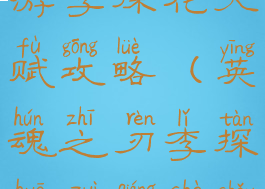 游李探花天
fù gōng lüè yīng
赋攻略（英
hún zhī rèn lǐ tàn
魂之刃李探